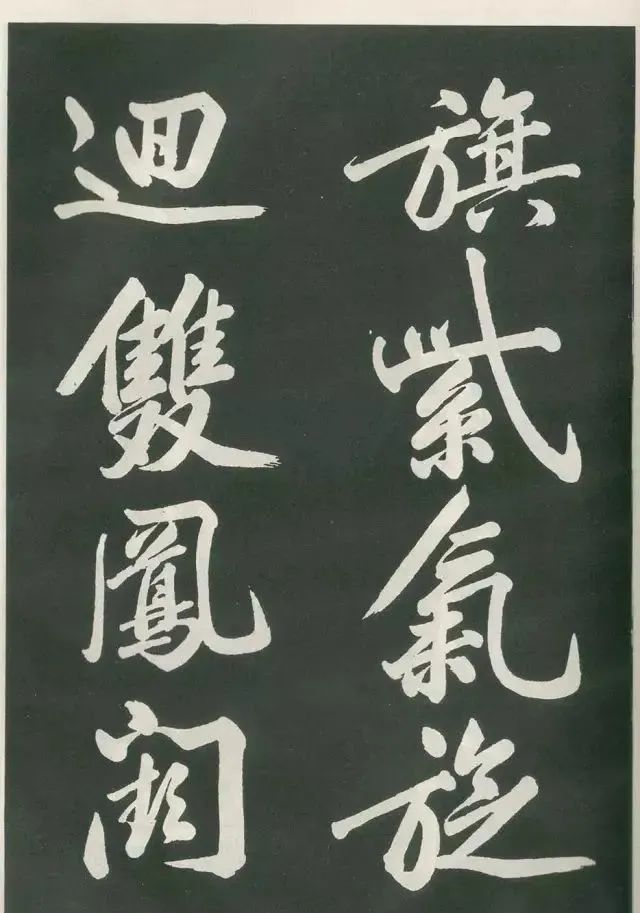 旗紫氣旋
迴雙鳳闕